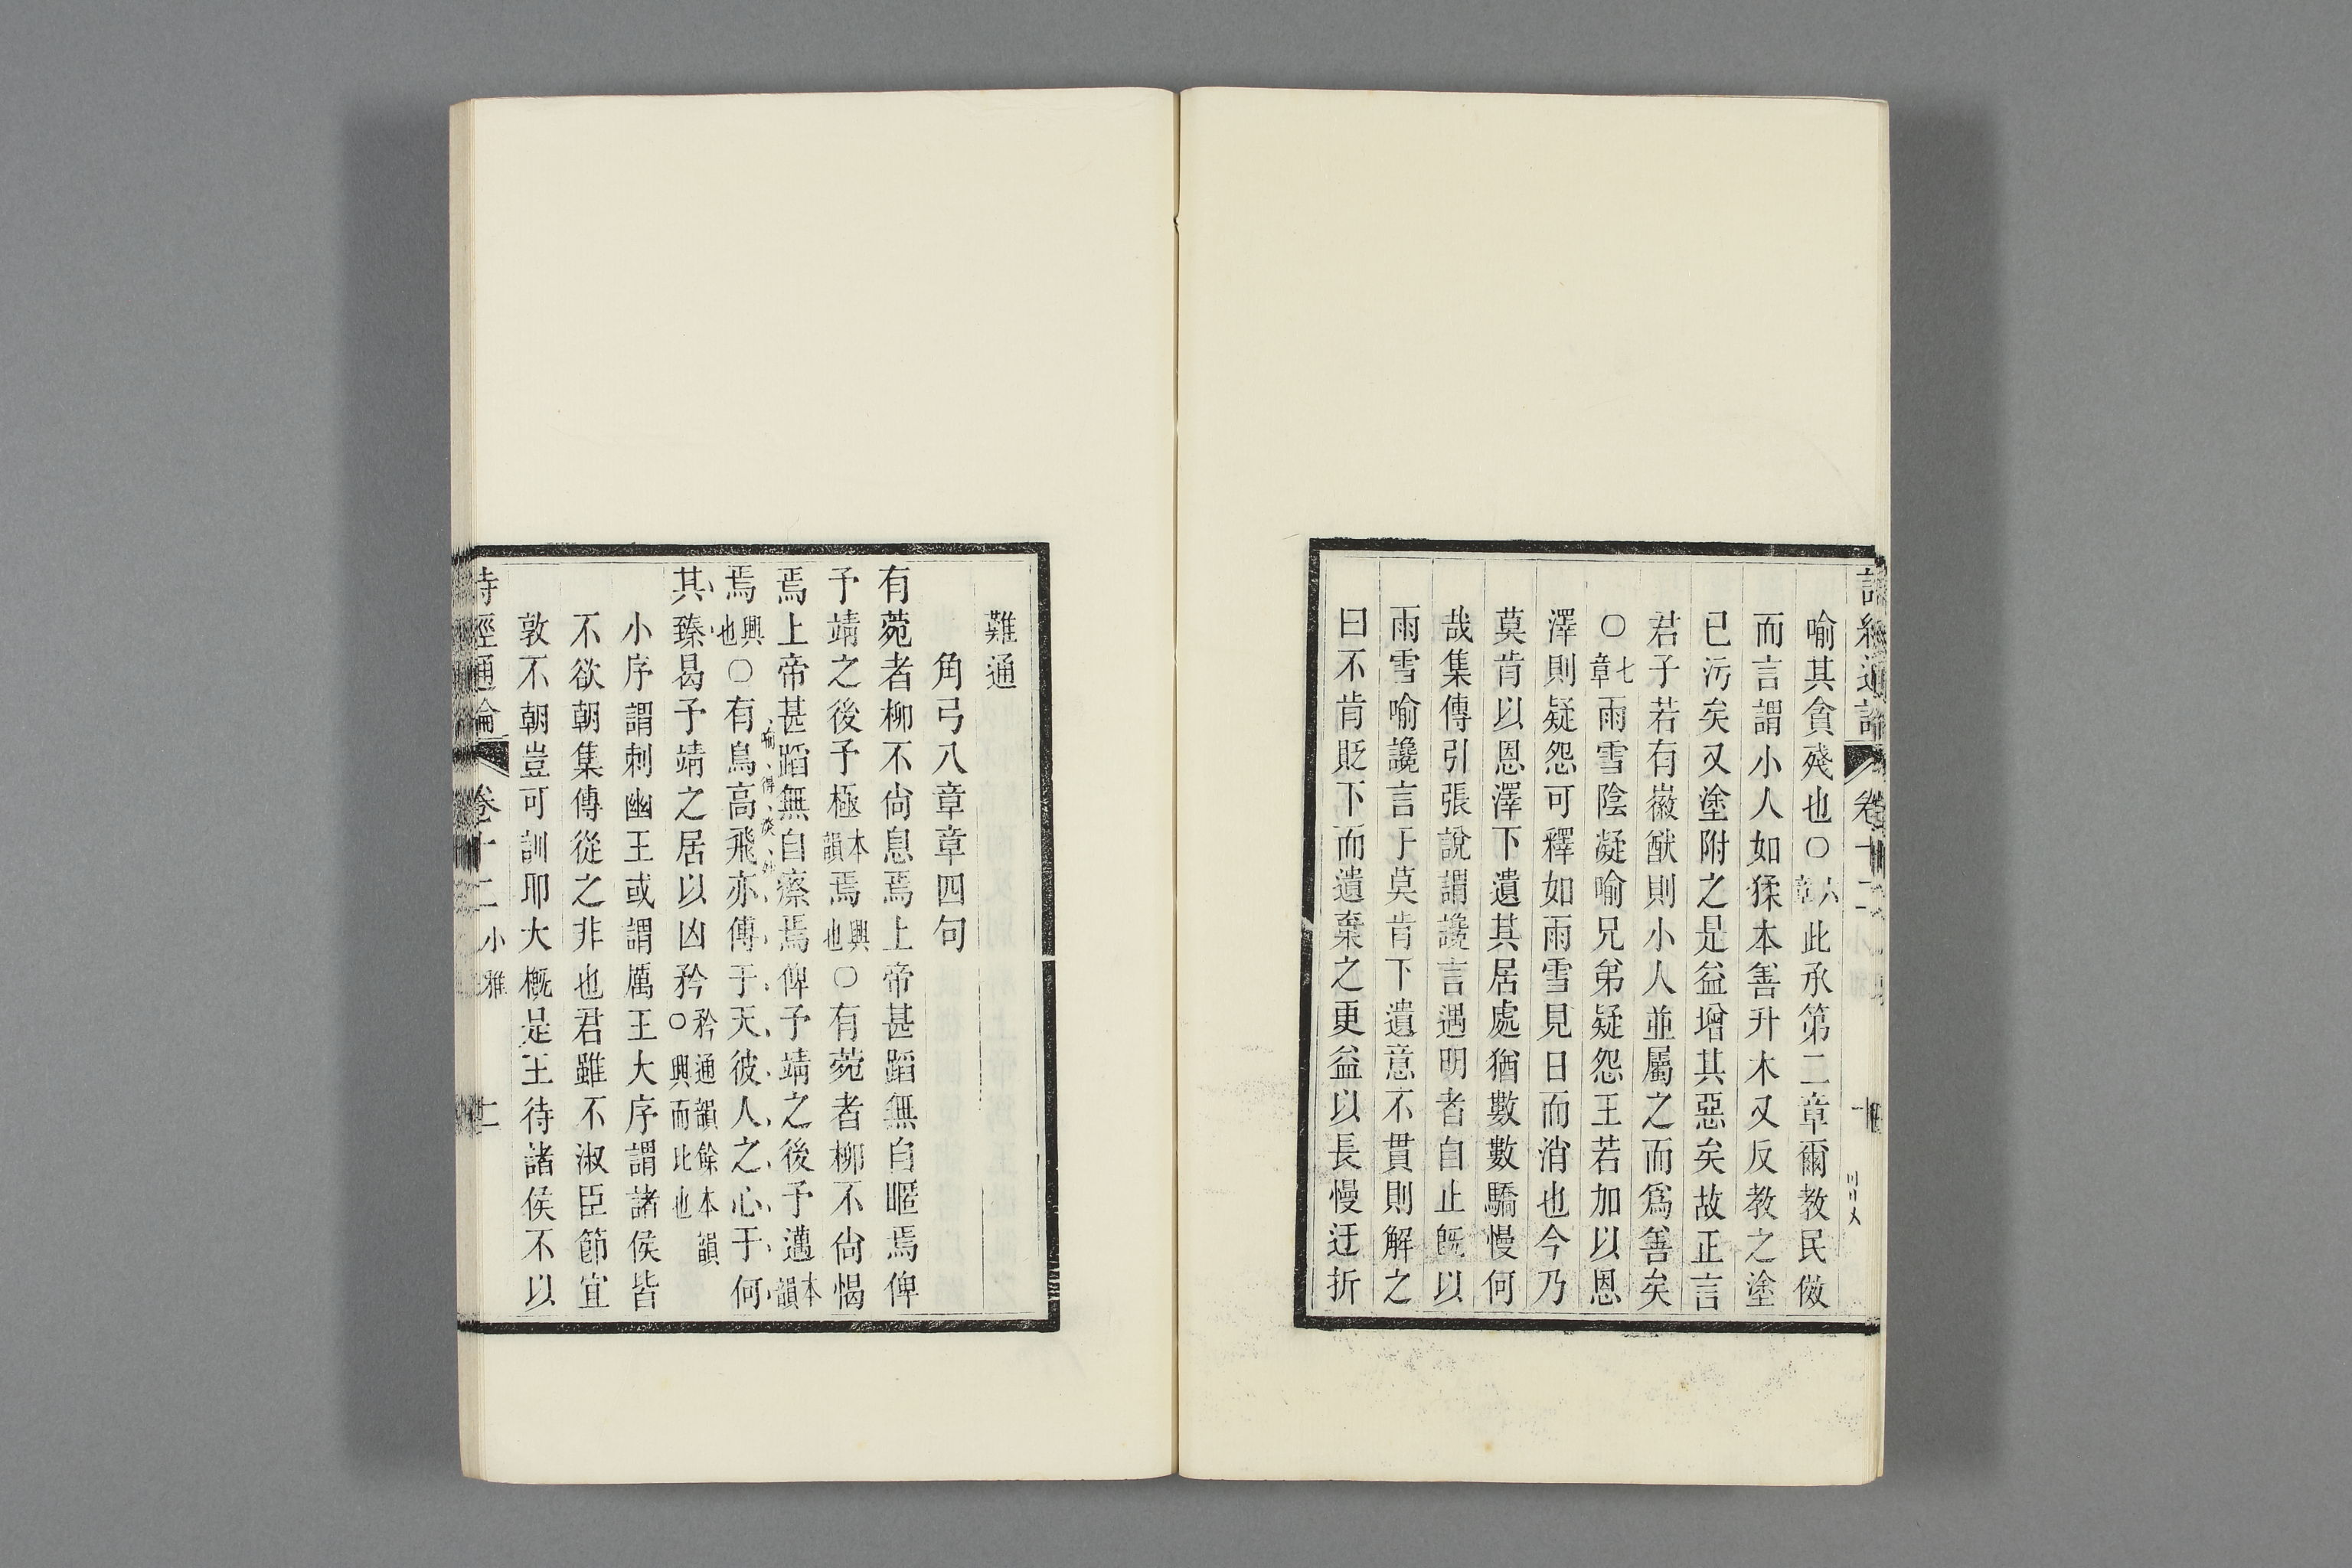 詩經通論 卷十二
喻其貪殘也〇六章此承第二章爾教民傚
而言謂小人如猱本善升木又反教之塗
已污矣又塗附之是益增其惡矣故正言
君子若有徽猷則小人並屬之而爲善矣
〇七章雨雪陰凝喻兄弟疑怨王若加以恩
澤則疑怨可釋如雨雪見日而消也今乃
莫肯以恩澤下遺其居處猶數數驕慢何
哉集傳引張說謂讒言遇明者自止旣以
雨雪喻讒言于莫肯下遺意不貫則解之
曰不肯貶下而遺棄之更益以長慢迂折
難通
角弓八章章四句
有菀者柳不尙息焉上帝甚蹈無自暱焉俾
予靖之後予極本韻焉興也〇有菀者柳不尙愒
焉上帝甚蹈無自瘵焉俾予靖之後予邁本韻
焉興也〇有鳥高飛亦傅于天彼人之心于何
其臻曷予靖之居以凶矜矜通韻餘本韻〇興而比也
小序謂刺幽王或謂厲王大序謂諸侯皆
不欲朝集傳從之非也君雖不淑臣節宜
敦不朝豈可訓耶大槪是王待諸侯不以
詩經通論 卷十二 小雅 二